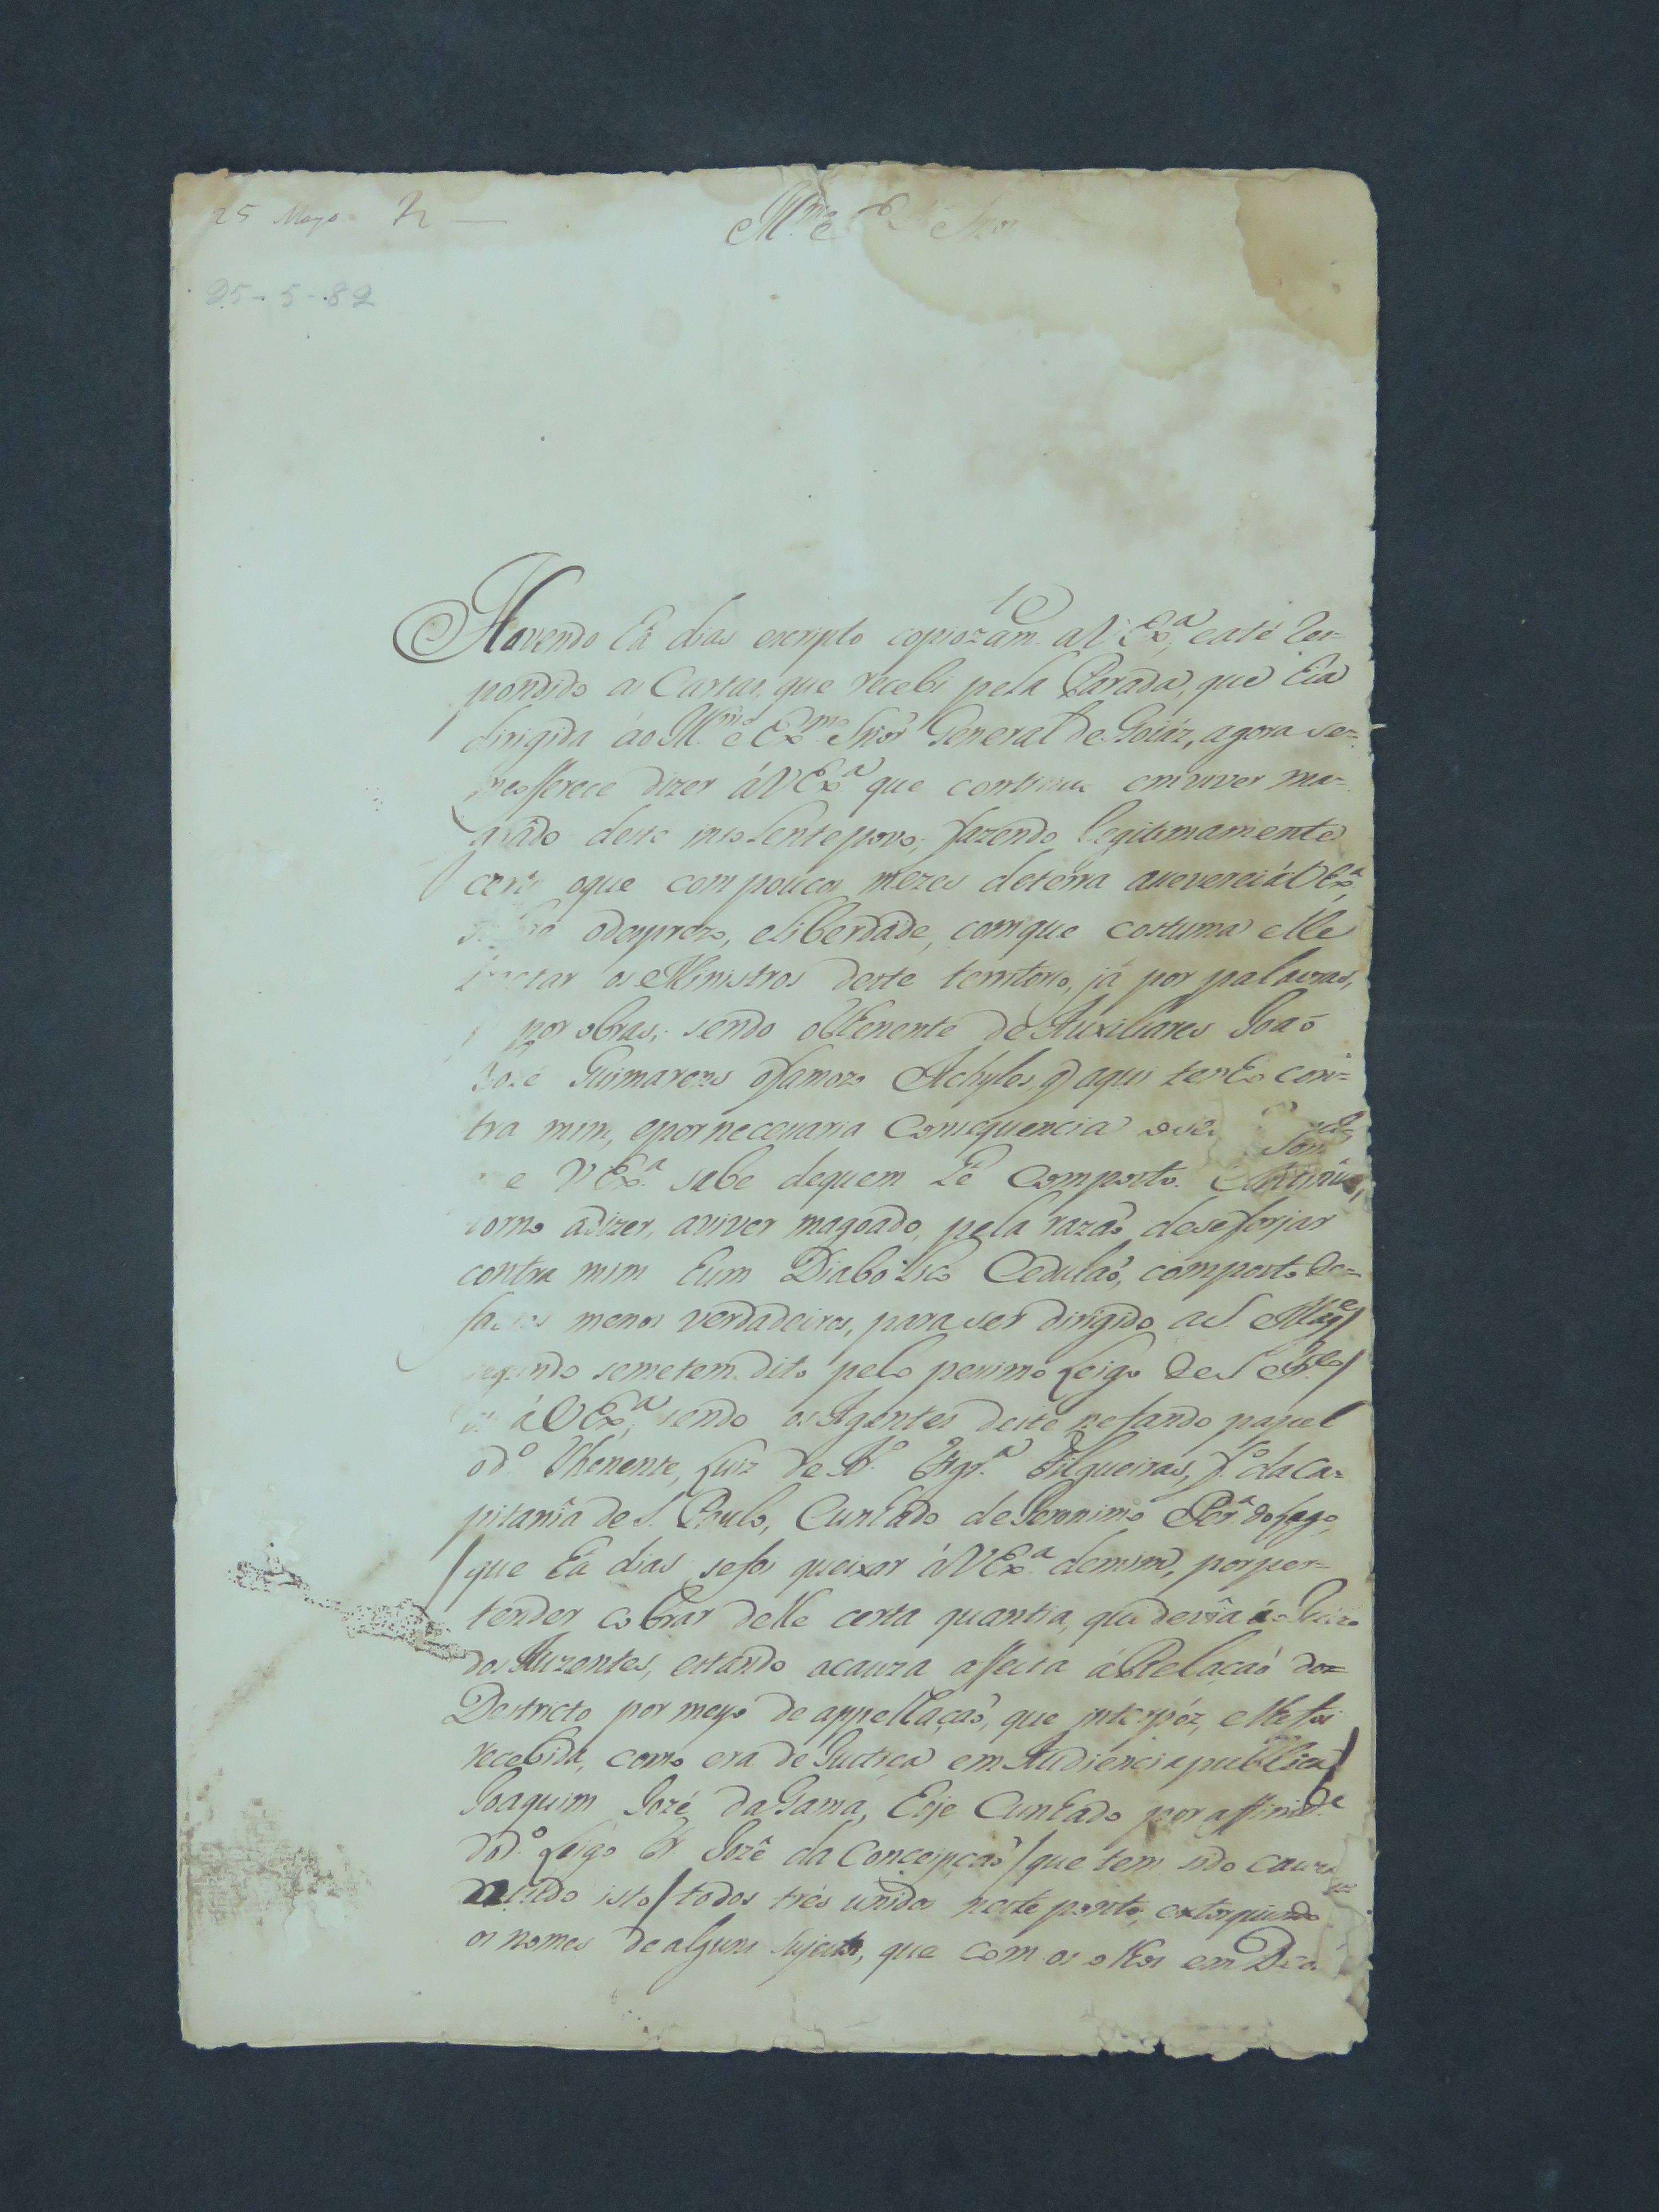 25 Mayo
Ill.mo e Snor
25-5-82
Havendo há dias escripto copiozam.te a V Ex.a, e até res=
pondido as Cartas, que recebi pela Parada, que hia
dirigida áo Ill.mo e Ex.mo Snor General de Goiáz, agora se=
me offerece dizer á V Ex.a que continua em viver ma=
goado deste insolente povo, fazendo legitimamente
certo oque com poucos mezes de terra asseverei á V Ex.a
sobre o desprezo, e liberdade, com que costuma elle
tractar os Ministros deste territorio, já por palavras,
por obras; sendo o Thenente de Auxiliares Joaõ
Jozé Guimarens o famozo Achyles, q aqui tenho con=
tra mim, e por necessaria consequencia
e V Ex.a sabe de quem hé composto.
torno a dizer, a viver magoado, pela razaõ de se forjar
contra mim hum Diabolico Cedulaõ, composto de=
factos menos verdadeiros, para ser dirigido a S Mag.e /
segundo se me tem dito pelo pessimo Leigo de S
á V Ex.a, sendo os Agentes deste nefando papel
o d.o Thenente, Luiz de Filgueiras, f.o da Ca=
pitanîa de S. Paulo, Cunhado de Jeronimo Per.a do Lago,
/ que há dias se foi queixar á V Ex.a de mim, por per=
tender cobrar delle certa quantia, que devîa áo Juizo
dos Auzentes, estando a cauza affecta á Relaçaõ do=
Destricto por meyo de appellaçaõ, que interpóz, e lhe foi
recebida, como era de Justiça em Audiencia publica /
Joaquim Jozé da Gama, hoje Cunhado por affinid.e
do d.o Leigo Jozê da Conceipçaõ / que tem sido cauza
de tudo isto / todos trés unidos neste ponto, extorquindo
os nomes de alguns sujeitos, que com os olhos em